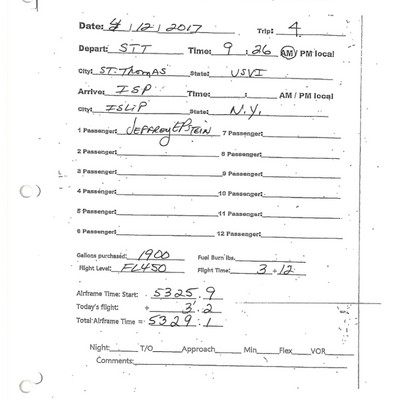 Date: 4 / 12 / 2017 Trip: 4
Depart: STT Time: 9 : 26 AM / PM local
City: ST. Thomas State: USVI
Arrive: ISP Time: : AM / PM local
City: ISLIP State: N.Y.
1 Passenger: JEFFREY EPSTEIN 7 Passenger:
2 Passenger: 8 Passenger:
3 Passenger: 9 Passenger:
4 Passenger: 10 Passenger:
5 Passenger: 11 Passenger:
6 Passenger: 12 Passenger:
Gallons purchased: 1900 Fuel Burn lbs.
Flight Level: FL450 Flight Time: 3 + 12
Airframe Time: Start: 5325 . 9
Today's flight: + 3 . 2
Total Airframe Time = 5329 . 1
Night: T/O Approach Min Flex VOR
Comments: